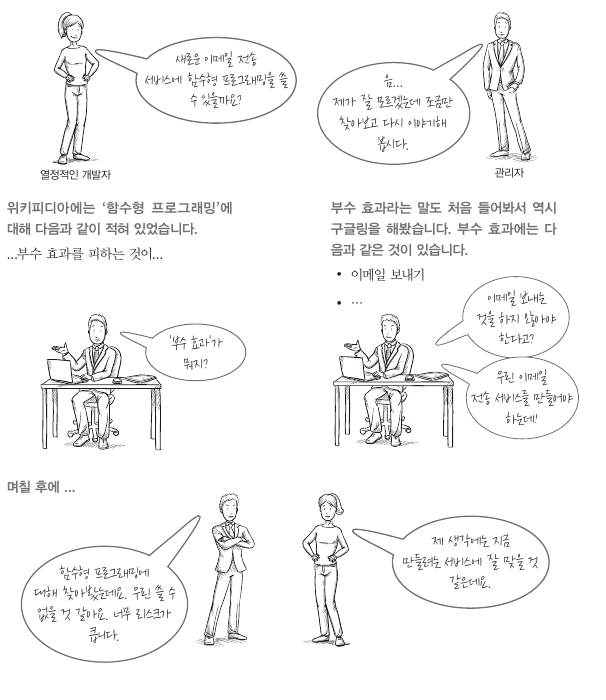 새로운 이메일 전송
서비스에 함수형 프로그래밍을 쓸
수 있을까요?
음...
제가 잘 모르겠는데 조금만
찾아보고 다시 이야기해
봅시다.
열정적인 개발자
관리자
위키피디아에는 ‘함수형 프로그래밍’에
대해 다음과 같이 적혀 있었습니다.
...부수 효과를 피하는 것이...
부수 효과라는 말도 처음 들어봐서 역시
구글링을 해봤습니다. 부수 효과에는 다
음과 같은 것이 있습니다.
• 이메일 보내기
• ...
‘부수 효과’가
뭐지?
이메일 보내는
것을 하지 않아야
한다고?
우린 이메일
전송 서비스를 만들어야
하는데!
며칠 후에 ...
함수형 프로그래밍에
대해 찾아봤는데요. 우린 쓸 수
없을 것 같아요. 너무 리스크가
큽니다.
제 생각에는 지금
만들려는 서비스에 잘 맞을 것
같은데요.